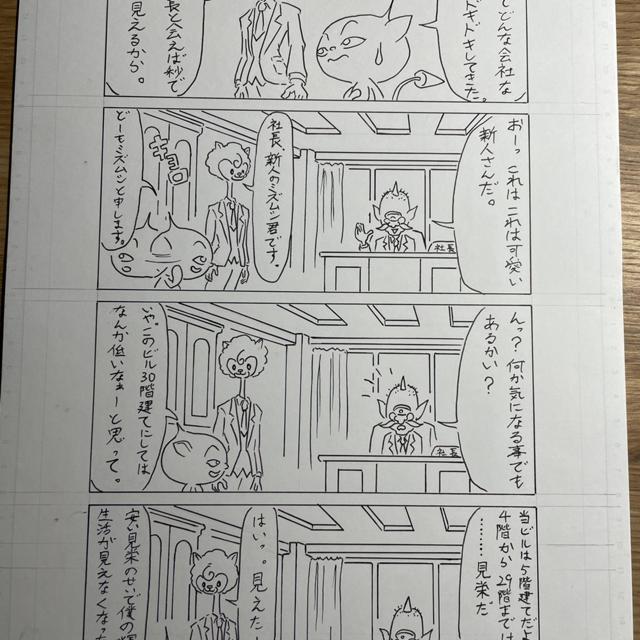 でどんな会社な
ドキドキしてきた。
長と会えば秒で
見えるから。
おーっ これはこれは可愛い
新人さんだ。
社長
社長、新人のミズムシ君です。
キョロ
どーもミズムシと申します。
んっ？何か気になる事でも
あるかい？
社長
いや、このビル30階建てにしては
なんか低いなぁーと思って。
当ビルは5階建てだよ
4階から29階までは
……見栄だ
はいっ。見えた
安い見栄のせいで僕の
生活が見えなくなっ